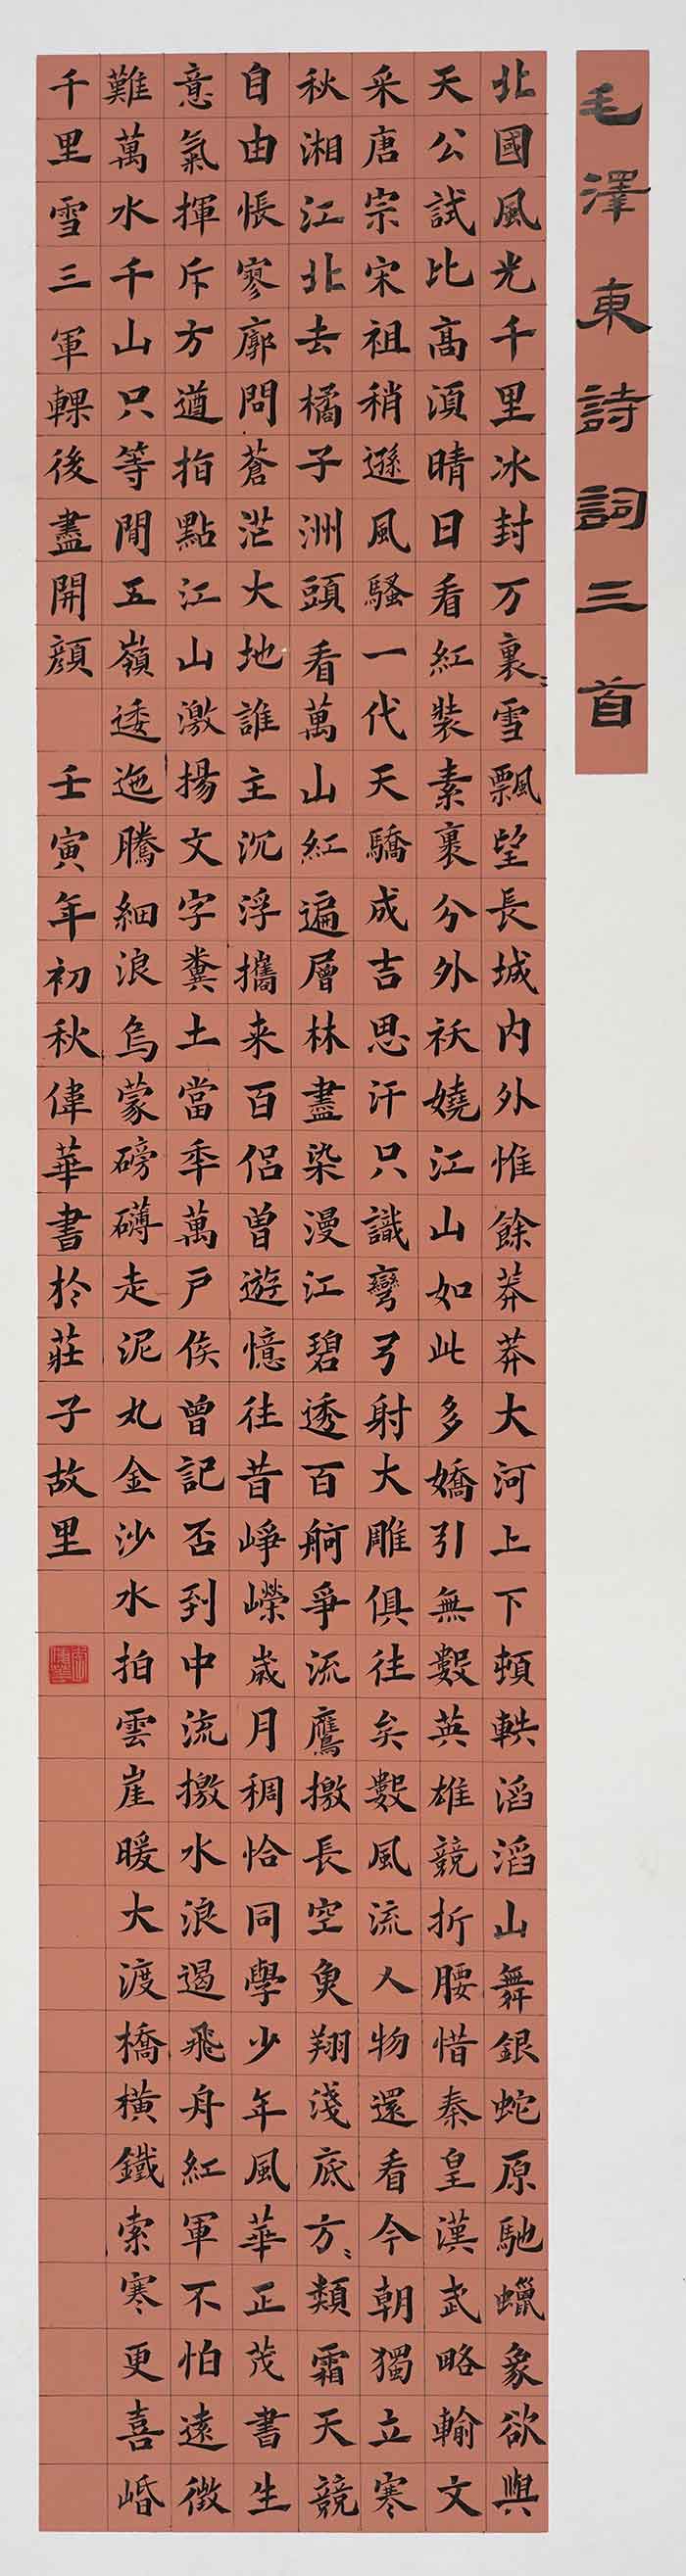 毛澤東詩詞三首
北國風光千里冰封万裏雪飄望長城内外惟餘莽莽大河上下頓輁滔滔山舞銀蛇原馳蠟象欲與
天公試比高湏晴日看紅裝素裹分外袄嬈江山如此多嬌引無數英雄競折腰惜秦皇漢武略輸文
采唐宗宋祖稍遜風騷一代天驕成吉思汗只識彎弓射大雕俱往矣數風流人物還看今朝獨立寒
秋湘江北去橘子洲頭看萬山紅遍層林盡染漫江碧透百舸爭流鷹撽長空魚翔淺底方類霜天競
自由悵寥廓問蒼茫大地誰主沉浮攜来百侶曾遊憶往昔崢嶸歲月稠恰同學少年風華正茂書生
意氣揮斥方遒指點江山激揚文字糞土當年萬戶侯曾記否到中流撽水浪遏飛舟紅軍不怕遠徵
難萬水千山只等閒五嶺逶迤騰細浪烏蒙磅礴走泥丸金沙水拍雲崖暖大渡橋橫鐵索寒更喜岷
千里雪三軍輠後盡開顏 壬寅年初秋偉華書於莊子故里